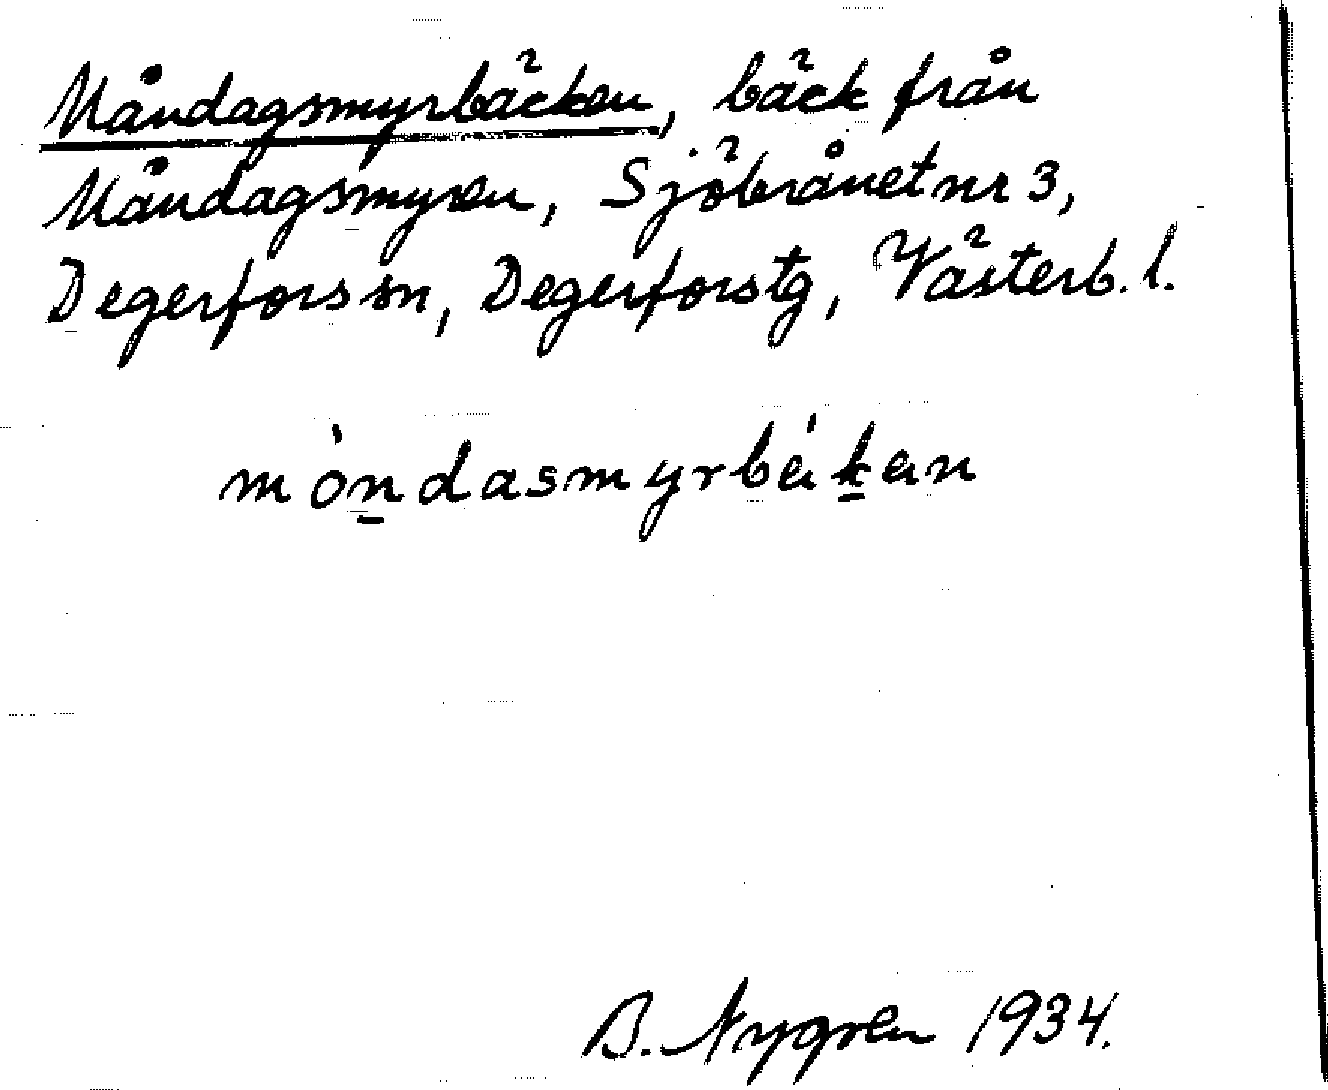 Måndagsmyrbäcken, bäck från
Måndagsmyren, Sjöbrånet nr 3,
Degerfors sn, Degerfors tg, Västerb. l.
mòn̲dasmyrbék̲en
B. Nygren 1934.